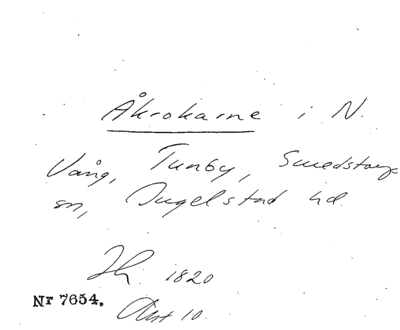 Åkrokarne i N.
Vång, Tunby, Smedstorps
sn, Ingelstad hd.
Jh. 1820
Nr 7654.
Akt 10.